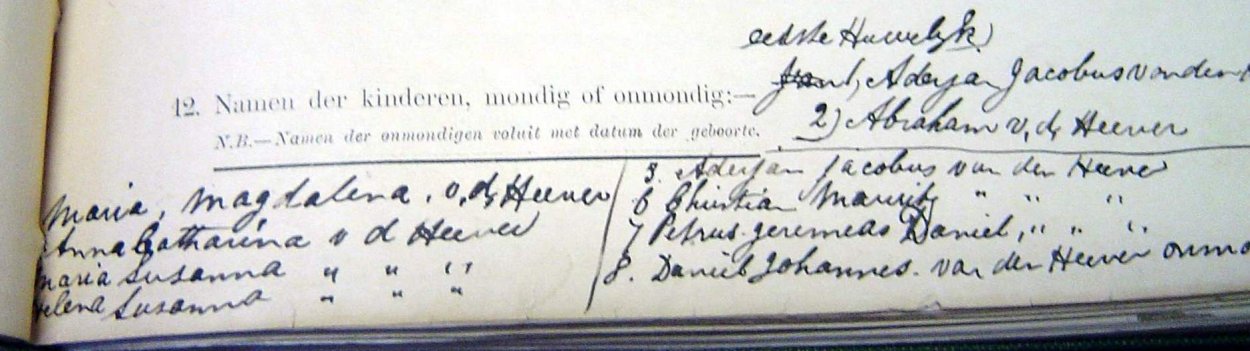 eerste Huwelyk)
1, Aderjan Jacobus van den
12. Namen der kinderen, mondig of onmondig:—
2) Abraham v, d, Heever
N.B.—Namen der onmondigen voluit met datum der geboorte.
Maria, Magdalena. v, d, Heever
Anna Catharina v d Heever
Maria Susanna " " "
Helena Susanna " " "
3. Aderjan Jacobus van den Heever
6 Christian Maurits " " "
7 Petrus Jeremeas Daniel, " " "
8. Daniel Johannes. van den Heever